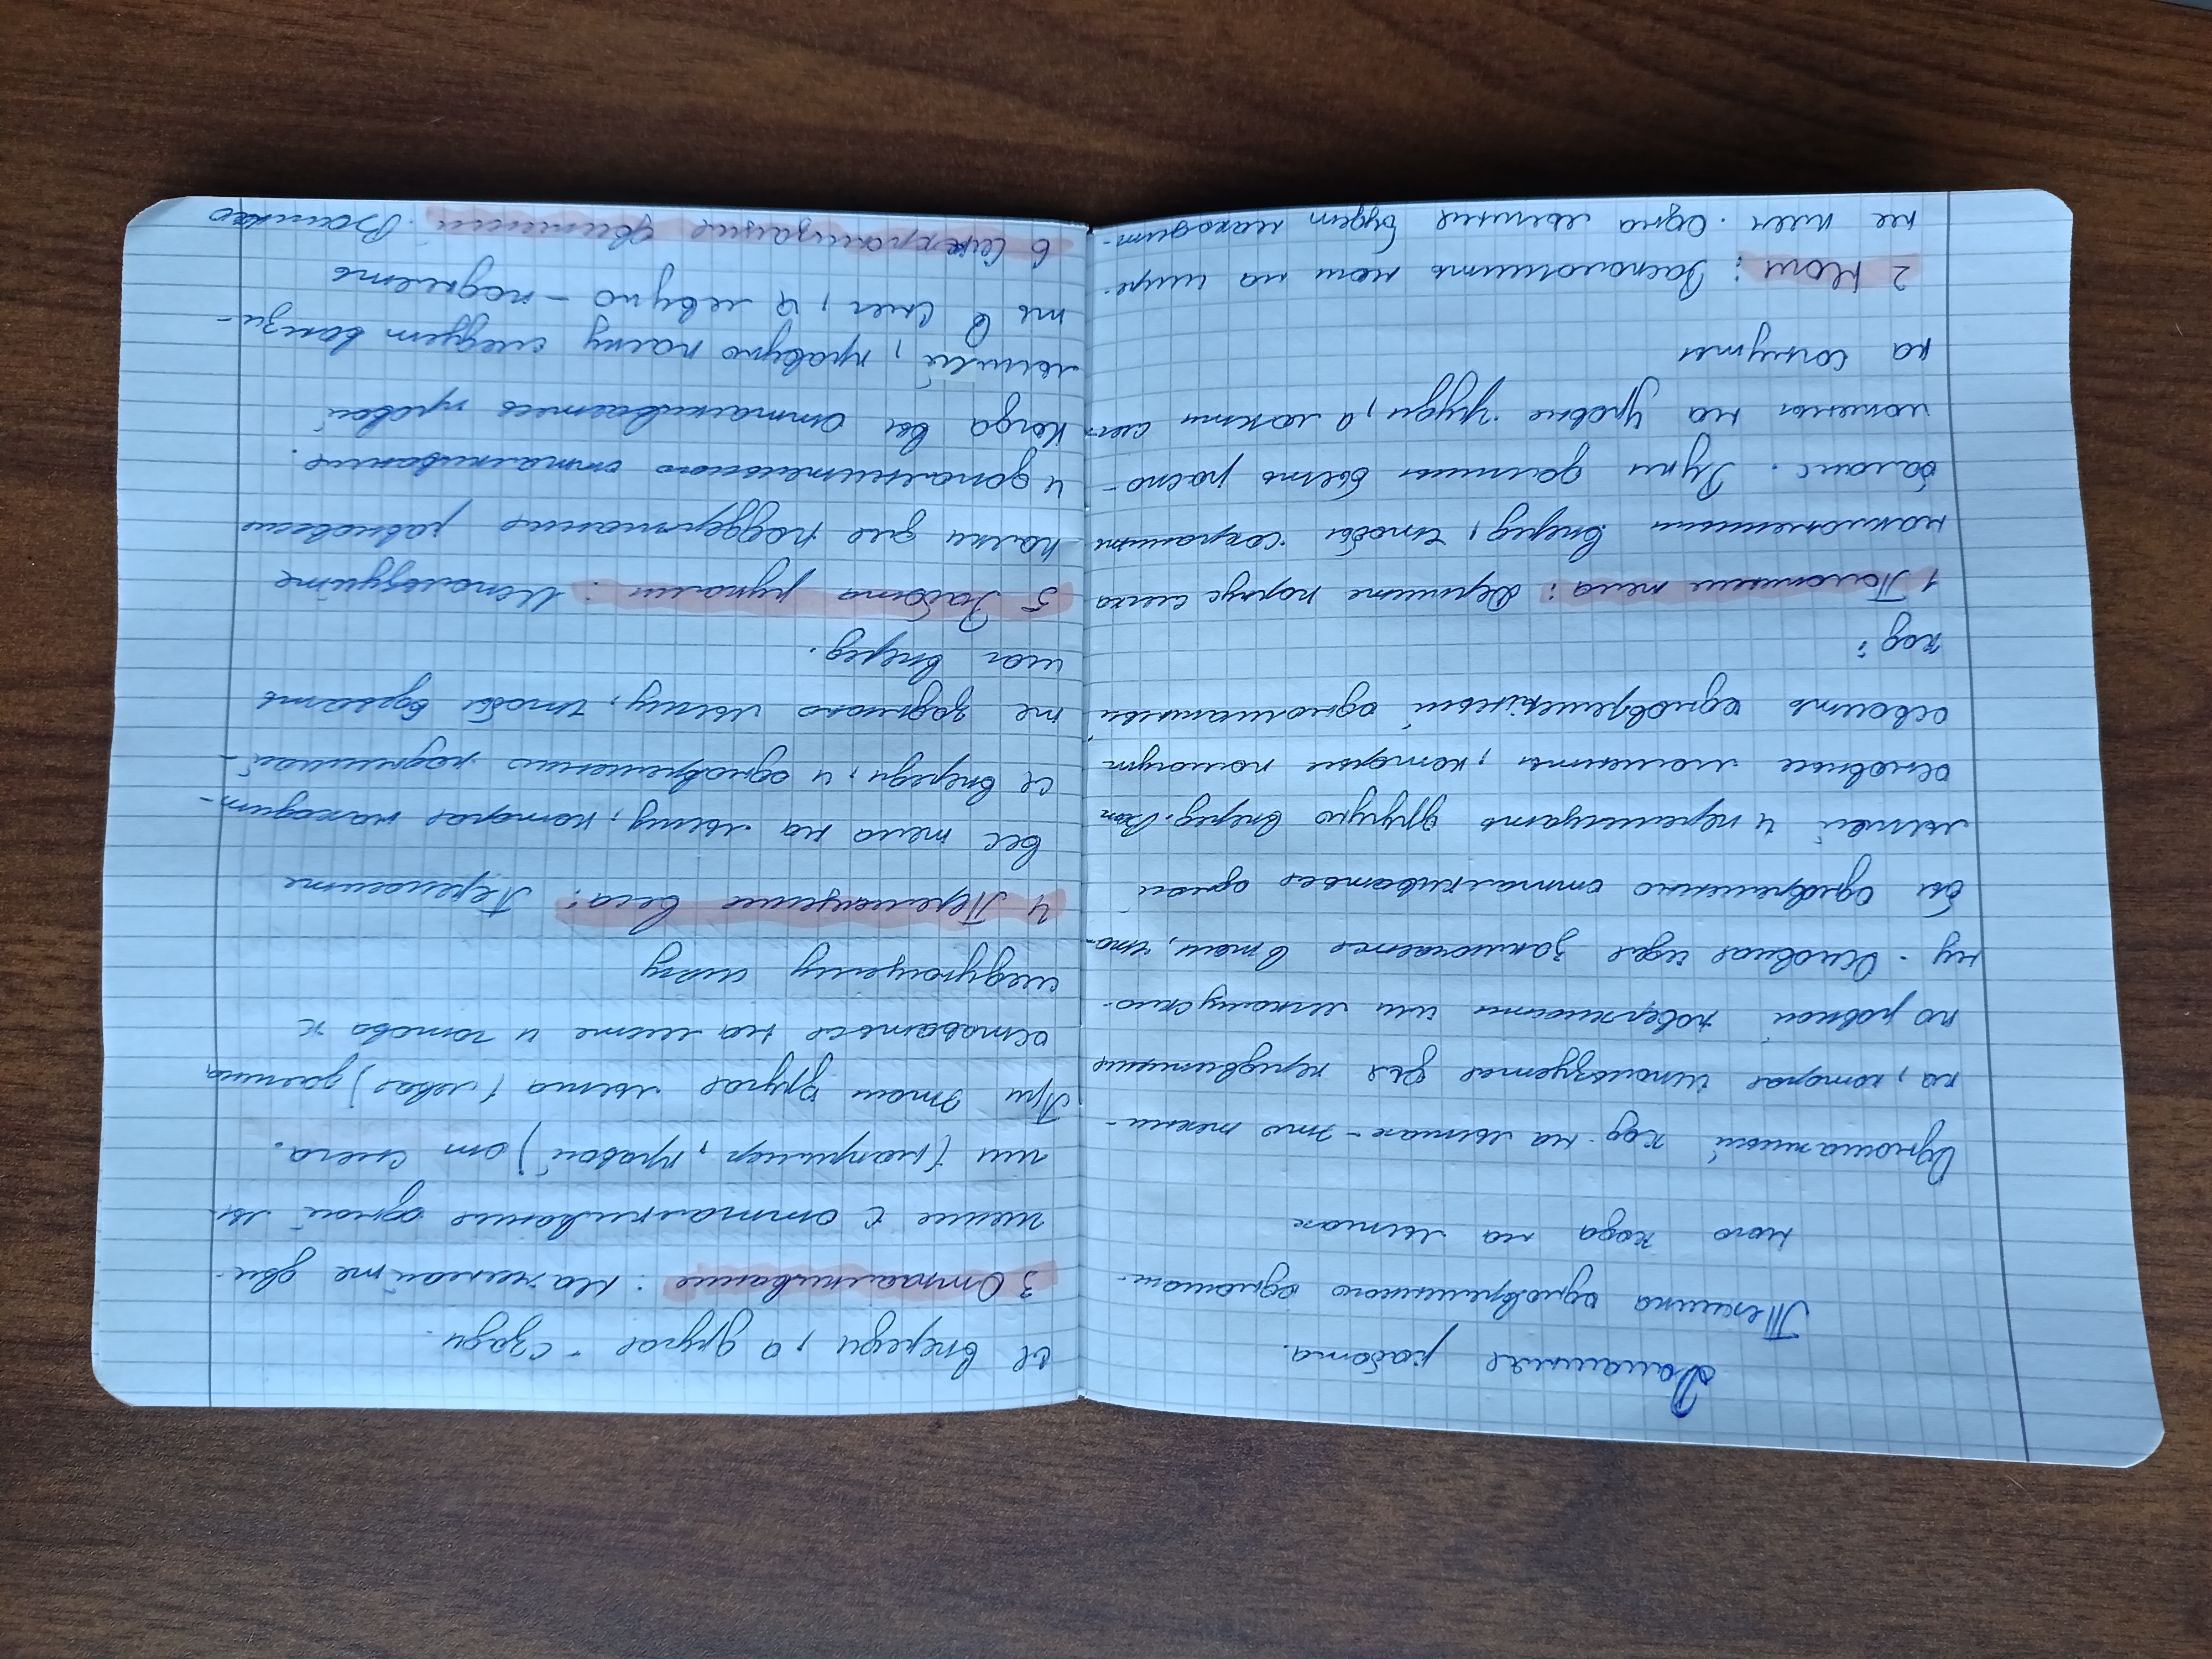 Домашняя работа.
Техника одновременного одношаж-
ного хода на лыжах
Одношажный ход на лыжах - это техни-
ка, которая используется для передвижения
по ровной поверхности или легкому скло-
ну. Основная идея заключается в том, что-
бы одновременно отталкиваться одной
лыжей и перемещать другую вперед. Вот
основные моменты, которые помогут
освоить одновременный одношажный
ход:
1 Положение тела: Держите корпус слегка
наклоненным вперед, чтобы сохранить
баланс. Руки должны быть распо-
ложены на уровне груди, а локти слег-
ка согнуты
2 Ноги: Расположить ноги на шири-
не плеч. Одна лыжня будет находит-
ся впереди, а другая - сзади.
3 Отталкивание: Начинайте дви-
жение с отталкивания одной лы-
жи (например, правой) от снега.
При этом другая лыжа (левая) должна
оставаться на месте и готова к
следующему шагу
4 Перемещение веса: Переносите
вес тела на лыжу, которая находит-
ся впереди, и одновременно поднимай-
те заднюю лыжу, чтобы сделать
шаг вперед.
5 Работа руками: Используйте
палки для поддержания равновесия
и дополнительного отталкивания.
Когда вы отталкиваетесь правой
лыжей, правую палку следует вонзи-
ть в снег, а левую - поднять
6 Синхронизация движений. Важно